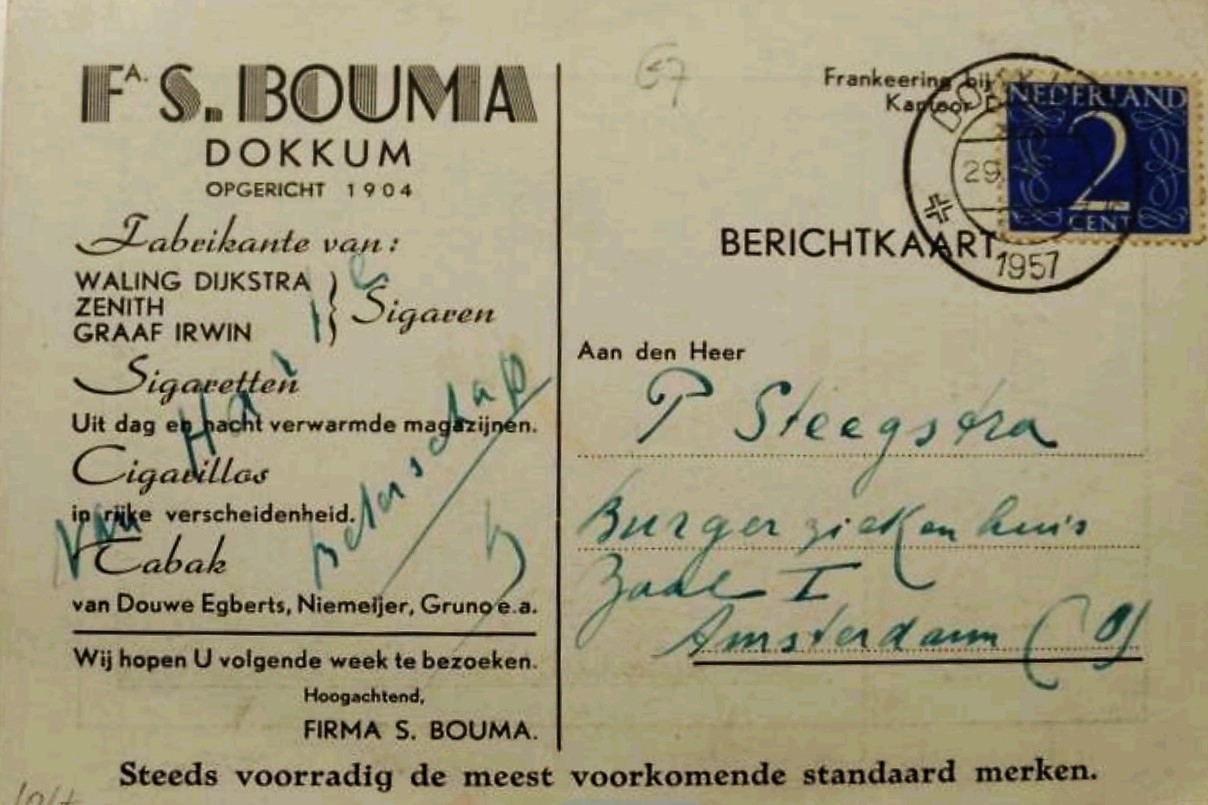 FA. S. BOUMA
DOKKUM
OPGERICHT 1904
Fabrikante van:
WALING DIJKSTRA
ZENITH
GRAAF IRWIN
Sigaren
Sigaretten
Uit dag en nacht verwarmde magazijnen.
Cigarillos
in rijke verscheidenheid.
Tabak
van Douwe Egberts, Niemeijer, Gruno e.a.
Wij hopen U volgende week te bezoeken.
Hoogachtend,
FIRMA S. BOUMA.
Van Ha
Beterschap
67
Frankeering bij
Kantoor
NEDERLAND
2
CENT
29
1957
BERICHTKAART
Aan den Heer
P Steegstra
Burgerziekenhuis
Zaal I
Amsterdam (O)
Steeds voorradig de meest voorkomende standaard merken.